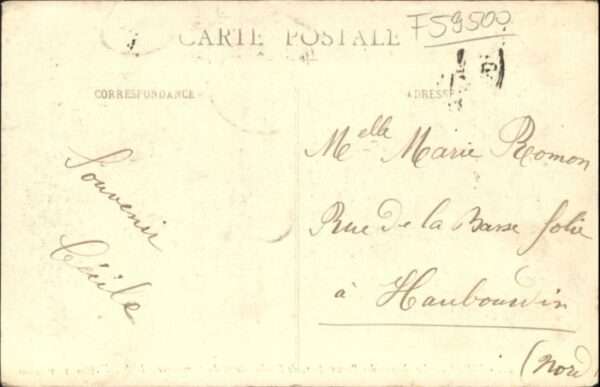 F59500
CARTE POSTALE
CORRESPONDANCE
ADRESSE
Souvenir
Cécile
Melle Marie Romon
Rue de la Basse folie
à Haubourdin
(Nord)